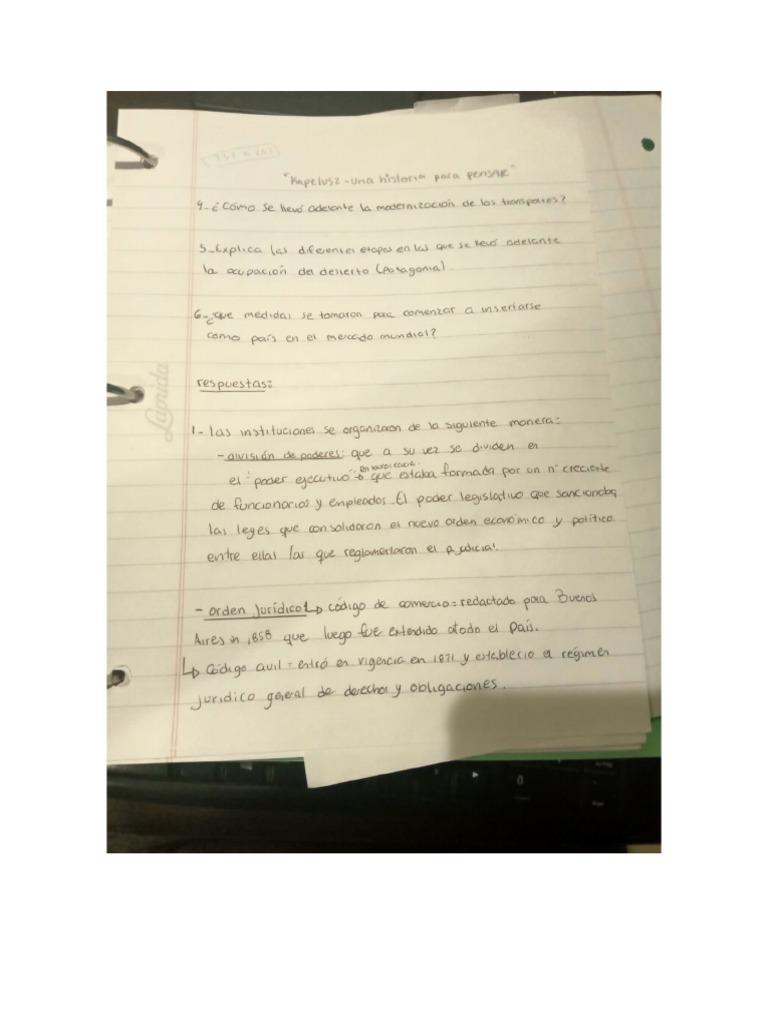 "Kapelusz - una historia para pensar"
4- ¿Cómo se llevó adelante la modernización de los transportes?
5- Explica las diferentes etapas en las que se llevó adelante
la ocupación del desierto (Patagonia)
6- ¿que medidas se tomaron para comenzar a insertarse
como país en el mercado mundial?
Laprida
respuestas:
1- las instituciones se organizaron de la siguiente manera:
- división de poderes: que a su vez se dividen en
el "poder ejecutivo" que estaba formada por un n° creciente
de funcionarios y empleados. El poder legislativo que sancionaba
las leyes que consolidaron el nuevo orden económico y político
entre ellas las que reglamentaron el p. judicial.
- orden jurídico ↳ código de comercio = redactado para Buenos
Aires en 1858 que luego fue extendido a todo el país.
↳ Código civil = entró en vigencia en 1871 y establecio el régimen
jurídico general de derechos y obligaciones.